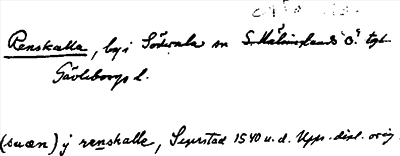 Renskalla, by i Söderala sn S. Hälsinglands ö. tgl.
Gävleborgs l.
(suæn) j renskalle, Segerstad 1540 u.d. Upps. dipl. orig.